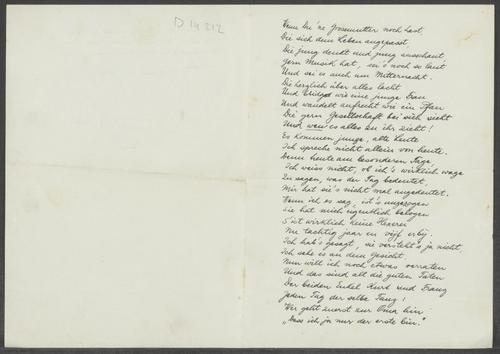 D 14 212
Wenn Du 'ne Grossmutter noch hast,
Die sich dem Leben angepasst,
Die jung denkt und jung ausschaut,
Gern Musik hat, sei's noch so laut
Und sei es auch um Mitternacht.
Die herzlich über alles lacht
Und Bridget wie eine junge Frau
Und wandelt aufrecht wie ein Pfau
Die gern Gesellschaft bei sich sieht
Und wen es alles zu ihr zieht!
Es kommen junge, alte Leute
Ich spreche nicht allein von heute.
Denn heute am besonderen Tage
Ich weiss nicht, ob ich's wirklich wage
Zu sagen, was der Tag bedeutet,
Mir hat sie's nicht mal angedeutet.
Wenn ich es sag, ist's ungezogen
Sie hat mich eigentlich belogen
S'ist wirklich keine Hexerei
Nu tachtig jaar en vijf erbij.
Ich hab's gesagt, sie versteht's ja nicht
Ich sehe es an dem Gesicht
Nun will ich noch etwas verraten
Und das sind all die guten Taten
Der beiden Enkel Kurt und Franz
Jeden Tag der selbe Tanz!
Wer geht zuerst zur Oma hin
"Dass ich ja nur der erste bin."